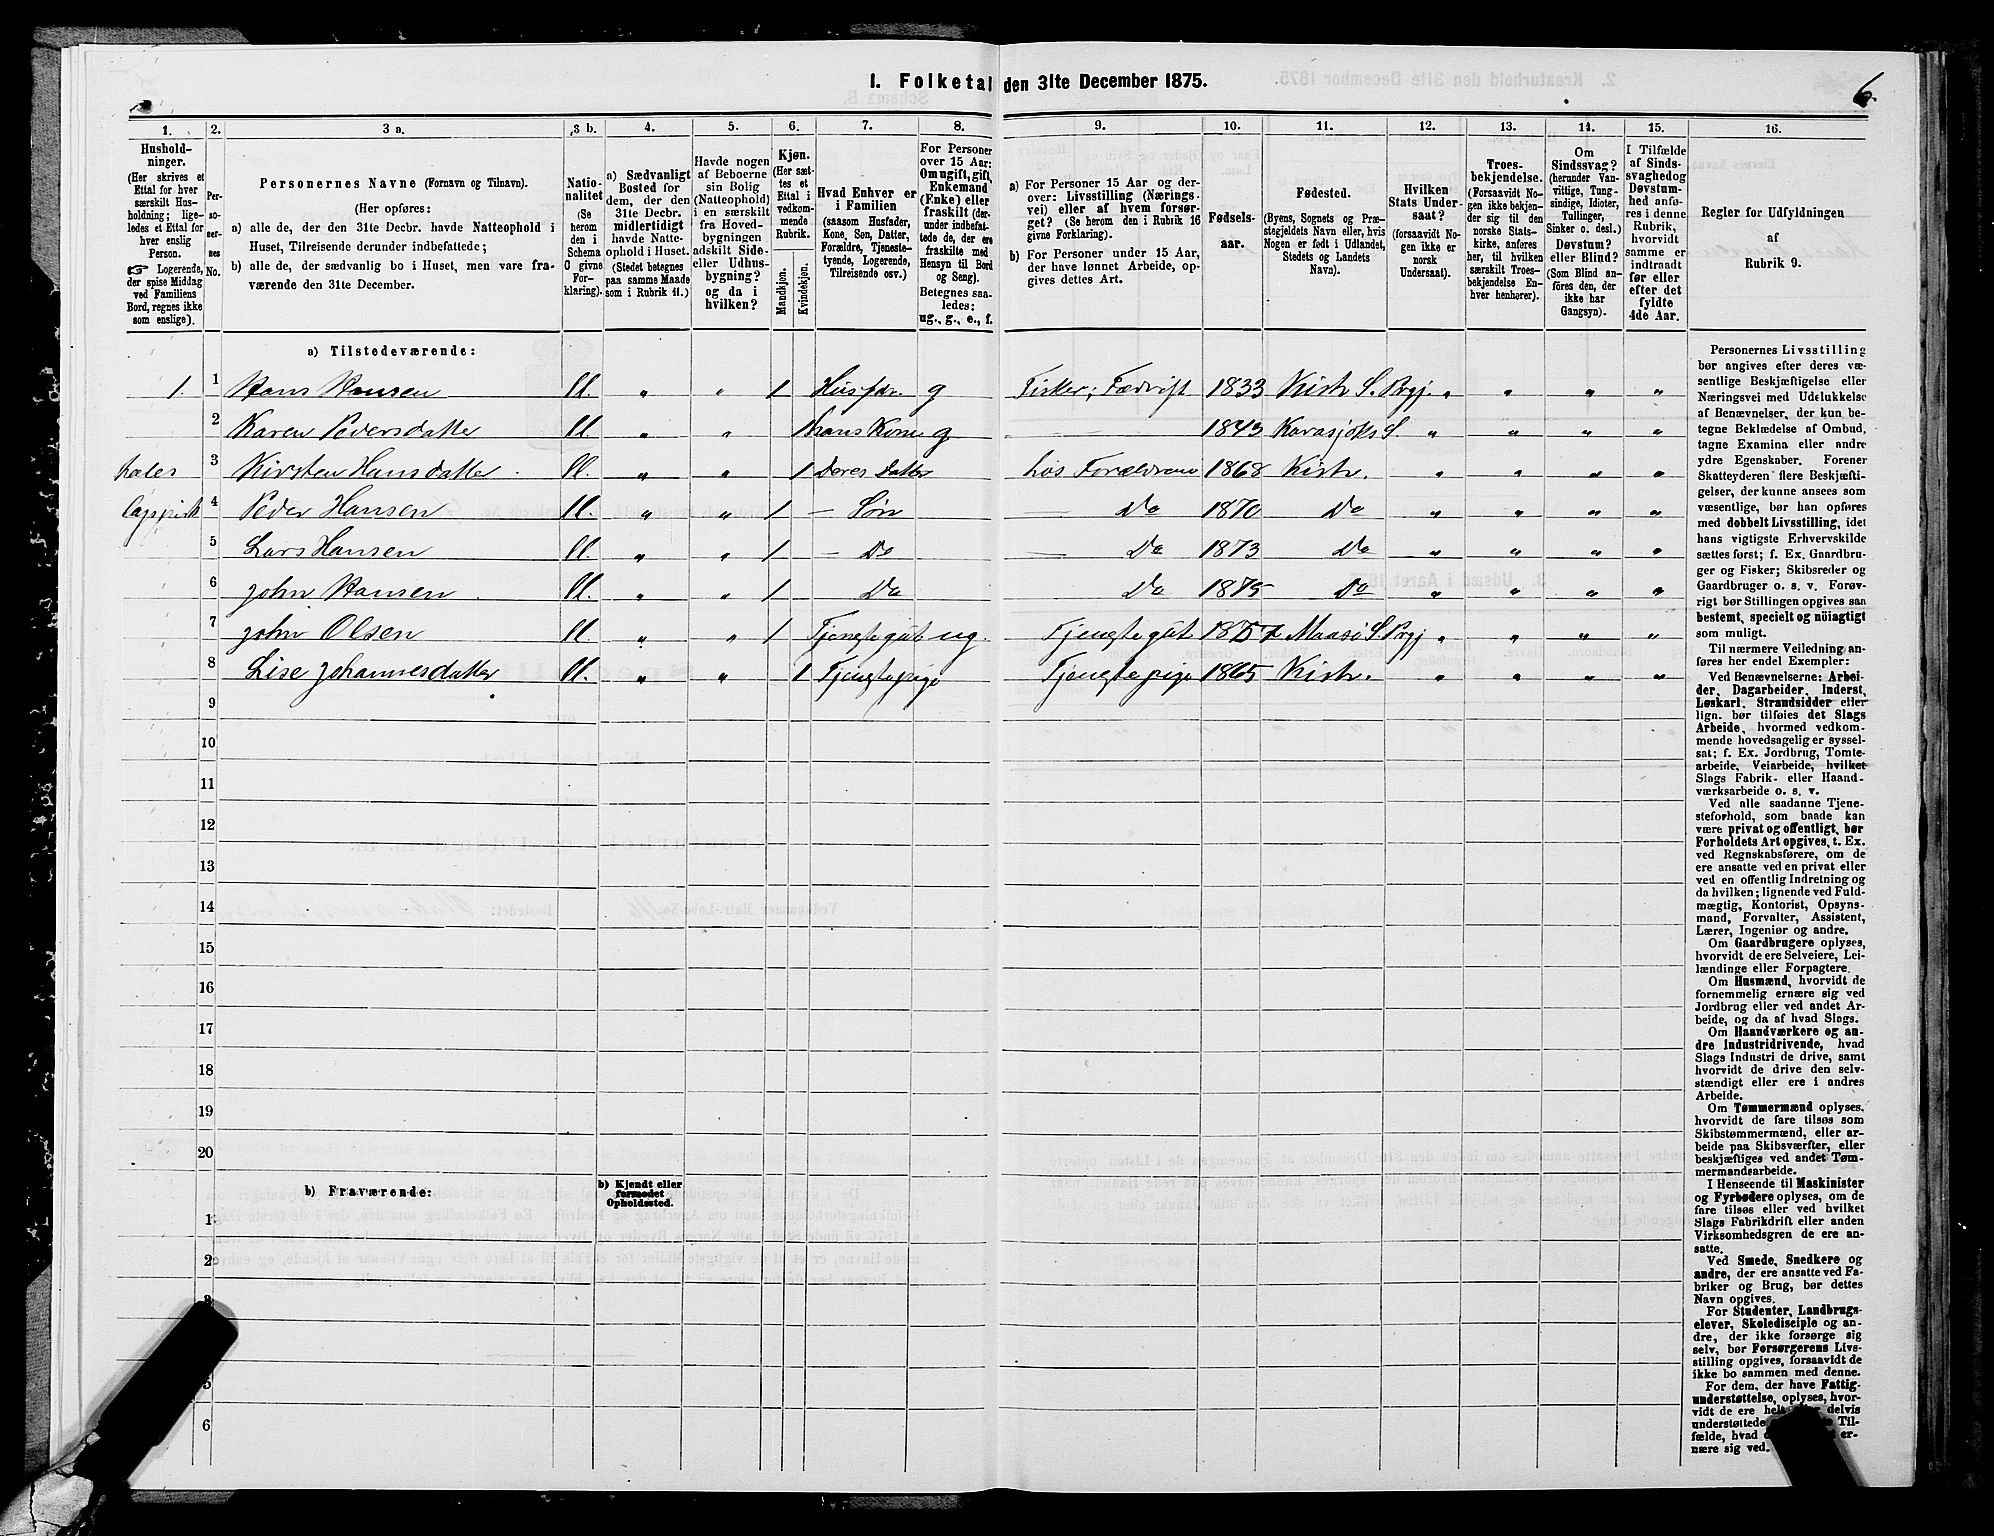 1. Folketal den 31te December 1875.
6.
1.
2.
3 a.
3 b.
4.
5.
6.
7.
8.
9.
10.
11.
12.
13.
14.
15.
16.
Hushold-
ninger.
(Her skrives et
Ettal for hver
særskilt Hus-
holdning; lige-
ledes et Ettal for
hver enslig
Person.
☞ Logerende,
der spise Middag
ved Familiens
Bord, regnes ikke
som enslige).
Per-
so-
ner-
nes
No.
Personernes Navne (Fornavn og Tilnavn).
(Her opføres:
a) alle de, der den 31te Decbr. havde Natteophold i
Huset, Tilreisende derunder indbefattede;
b) alle de, der sædvanlig bo i Huset, men vare fra-
værende den 31te December.
Natio-
nalitet
(Se
herom
den i
Schema
C givne
For-
klaring).
a) Sædvanligt
Bosted for
dem, der den
31te Decbr.
midlertidigt
havde Natte-
ophold i Huset.
(Stedet betegnes
paa samme Maade
som i Rubrik 11.)
Havde nogen
af Beboerne
sin Bolig
(Natteophold)
i en særskilt
fra Hoved-
bygningen
adskilt Side-
eller Udhus-
bygning?
og da i
hvilken?
Kjøn.
(Her sæt-
tes et
Ettal i
vedkom-
mende
Rubrik.
Mandkjøn.
Kvindekjøn.
Hvad Enhver er
i Familien
(saasom Husfader,
Kone, Søn, Datter,
Forældre, Tjeneste-
tyende, Logerende,
Tilreisende osv.)
For Personer
over 15 Aar:
Om ugift, gift,
Enkemand
(Enke) eller
fraskilt (der-
under indbefat-
tede de, der ere
fraskilte med
Hensyn til Bord
og Seng).
Betegnes saa-
ledes:
ug., g., e., f.
a) For Personer 15 Aar og der-
over: Livsstilling (Nærings-
vei) eller af hvem forsør-
get? (Se herom den i Rubrik 16
givne Forklaring).
b) For Personer under 15 Aar,
der have lønnet Arbeide, op-
gives dettes Art.
Fødsels-
aar.
Fødested.
(Byens, Sognets og Præ-
stegjeldets Navn eller, hvis
Nogen er født i Udlandet,
Stedets og Landets
Navn).
Hvilken
Stats Under-
saat?
(forsaavidt No-
gen ikke er
norsk
Undersaat).
Troes-
bekjendelse.
(Forsaavidt No-
gen ikke bekjen-
der sig til den
norske Stats-
kirke, anføres
her, til hvilken
særskilt Troes-
bekjendelse En-
hver henhører).
Om
Sindssvag?
(herunder Van-
vittige, Tung-
sindige, Idioter,
Tullinger,
Sinker o. desl.)
Døvstum?
eller Blind?
(Som Blind an-
føres den, der
ikke har
Gangsyn).
I Tilfælde
af Sinds-
svaghed og
Døvstum-
hed anfø-
res i denne
Rubrik,
hvorvidt
samme er
indtraadt
før eller
efter det
fyldte
4de Aar.
Regler for Udfyldningen
af
Rubrik 9.
a) Tilstedeværende:
1. 1 Hans Hansen ll. " " 1 Husfdr. g Fisker; Fædrift 1833 Kistr. S. Prgj. " " " "
2 Karen Pedersdatter ll. " " 1 hans Kone g 1843 Karasjoks S. " " " "
taler 3 Kirsten Hansdatter ll. " " 1 Deres Datter hos Forældrene 1868 Kistr. " " " "
lappisk 4 Peder Hansen ll. " " 1 — Søn — Do 1870 Do " " " "
5 Lars Hansen ll. " " 1 — Do — Do 1873 Do " " " "
6 John Hansen ll. " " 1 Do Do 1875 Do " " " "
7 John Olsen ll. " " 1 Tjenstegut ug. Tjenstegut Maasø S. Prgj " " " "
8 Lise Johannesdatter ll. " " 1 Tjenstepige Tjenstepige 1865 Kistr. " " " "
9
10
11
12
13
14
15
16
17
18
19
20
b) Fraværende:
b) Kjendt eller
formodet
Opholdssted.
1
2
3
5
6
Personernes Livsstilling
bør angives efter deres væ-
sentlige Beskjæftigelse eller
Næringsvei med Udelukkelse
af Benævnelser, der kun be-
tegne Beklædelse af Ombud,
tagne Examina eller andre
ydre Egenskaber. Forener
Skatteyderen flere Beskjæfti-
gelser, der kunne ansees som
væsentlige, bør han opføres
med dobbelt Livsstilling, idet
hans vigtigste Erhvervskilde
sættes først; f. Ex. Gaardbru-
ger og Fisker; Skibsreder og
Gaardbruger o. s. v. Forøv-
rigt bør Stillingen opgives saa
bestemt, specielt og nöiagtigt
som muligt.
Til nærmere Veiledning an-
føres her endel Exempler:
Ved Benævnelserne: Arbei-
der, Dagarbeider, Inderst,
Løskarl, Strandsidder eller
lign. bør tilføies det Slags
Arbeide, hvormed vedkom-
mende hovedsagelig er syssel-
sat; f. Ex. Jordbrug, Tomte-
arbeide, Veiarbeide, hvilket
Slags Fabrik- eller Haand-
værksarbeide o. s. v.
Ved alle saadanne Tjene-
steforhold, som baade kan
være privat og offentligt, bør
Forholdets Art opgives, t. Ex.
ved Regnskabsførere, om de
ere ansatte ved en privat eller
ved en offentlig Indretning og
da hvilken; lignende ved Fuld-
mægtig, Kontorist, Opsyns-
mand, Forvalter, Assistent,
Lærer, Ingeniør og andre.
Om Gaardbrugere oplyses,
hvorvidt de ere Selveiere, Lei-
lændinge eller Forpagtere.
Om Husmænd, hvorvidt de
fornemmelig ernære sig ved
Jordbrug eller ved andet Ar-
beide, og da af hvad Slags.
Om Haandværkere og an-
dre Industridrivende, hvad
Slags Industri de drive, samt
hvorvidt de drive den selv-
stændigt eller ere i andres
Arbeide.
Om Tømmermænd oplyses,
hvorvidt de fare tilsøs som
Skibstømmermænd, eller ar-
beide paa Skibsværfter, eller
beskjæftiges ved andet Tøm-
mermandsarbeide.
I Henseende til Maskinister
og Fyrbødere oplyses, om de
fare tilsøs eller ved hvilket
Slags Fabrikdrift eller anden
Virksomhedsgren de ere an-
satte.
Ved Smede, Snedkere og
andre, der ere ansatte ved Fa-
briker og Brug, bør dettes
Navn opgives.
For Studenter, Landbrugs-
elever, Skoledisciple og an-
dre, der ikke forsørge sig
selv, bør Forsørgerens Livs-
stilling opgives, forsaavidt de
ikke bo sammen med denne.
For dem, der have Fattig-
understøttelse, oplyses, hvor-
vidt de ere delvis
understøttede Til-
fælde, hvad er-
nære sig ved.